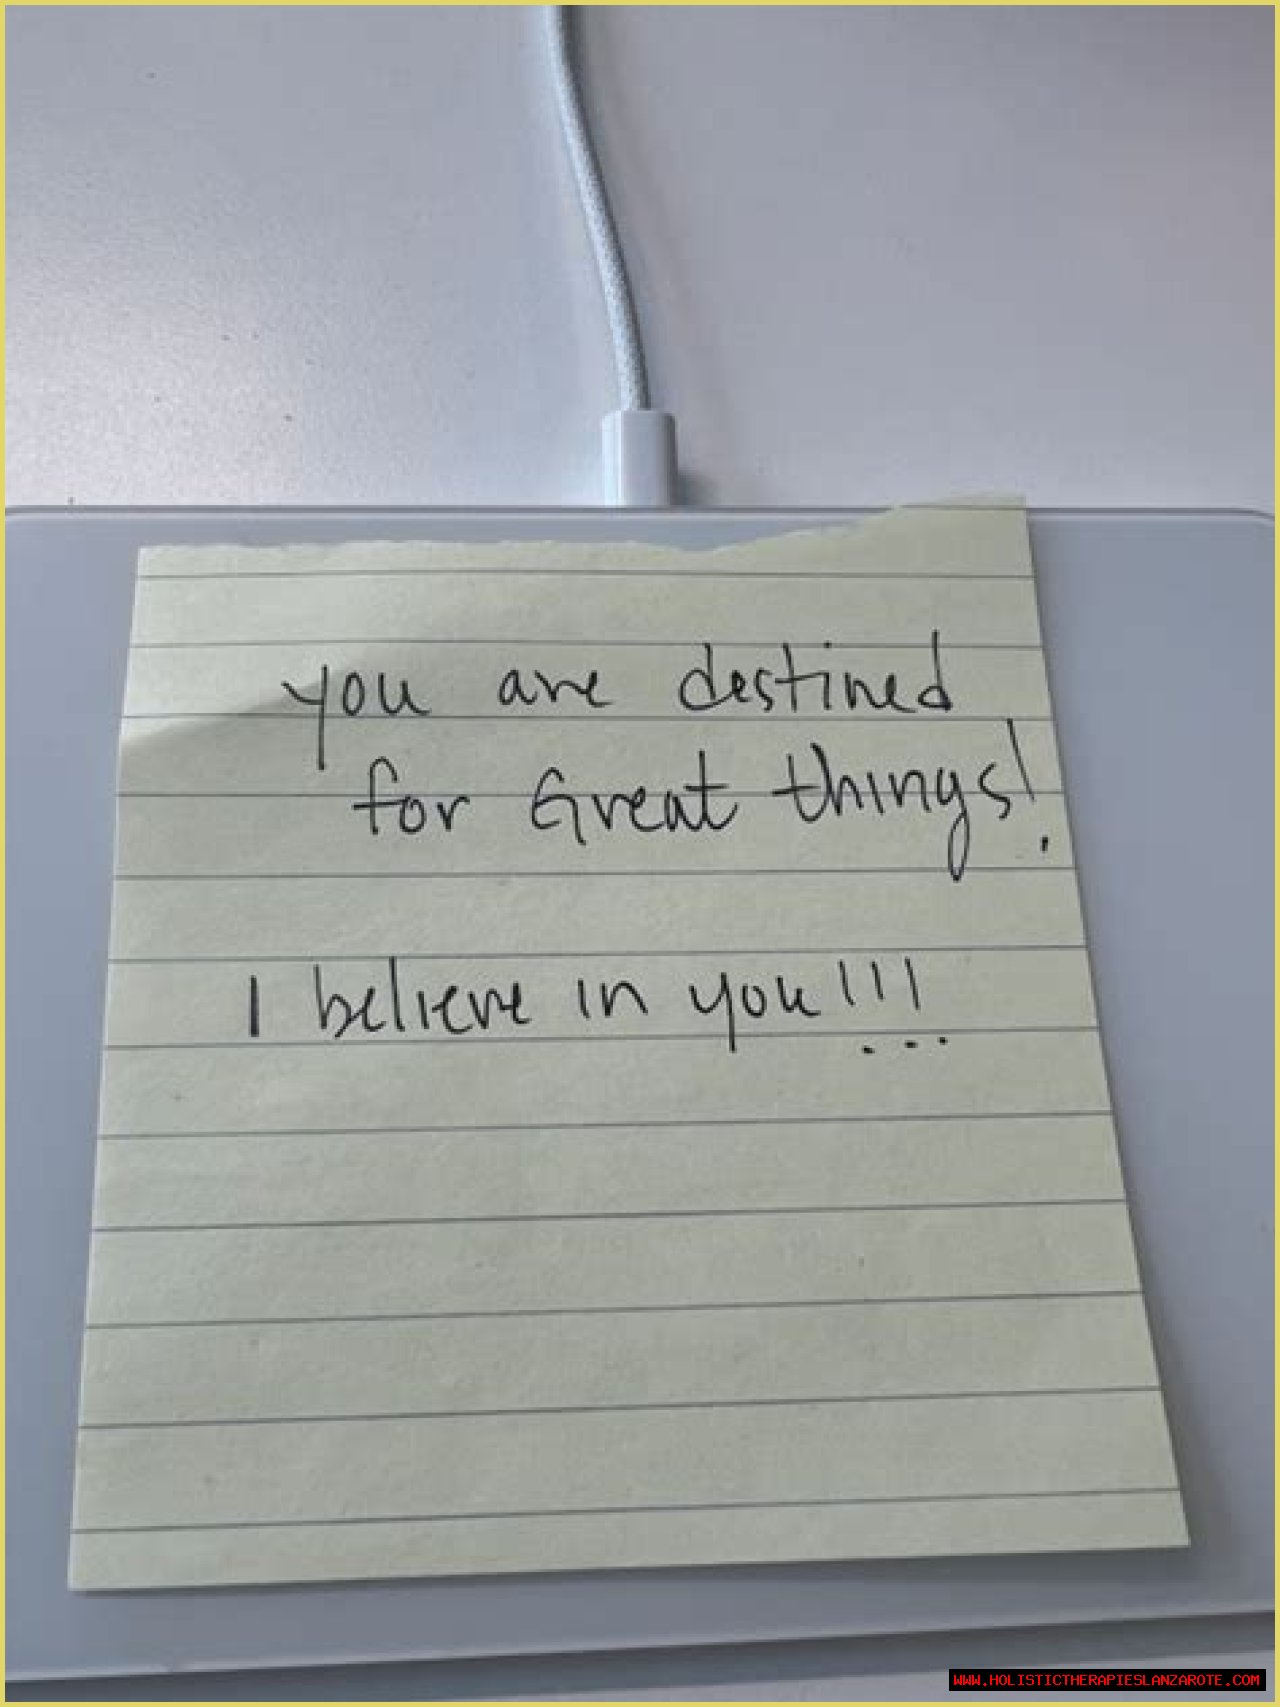 you are destined
for Great things!
I believe in you!!!
WWW.HOLISTICTHERAPIESLANZAROTE.COM